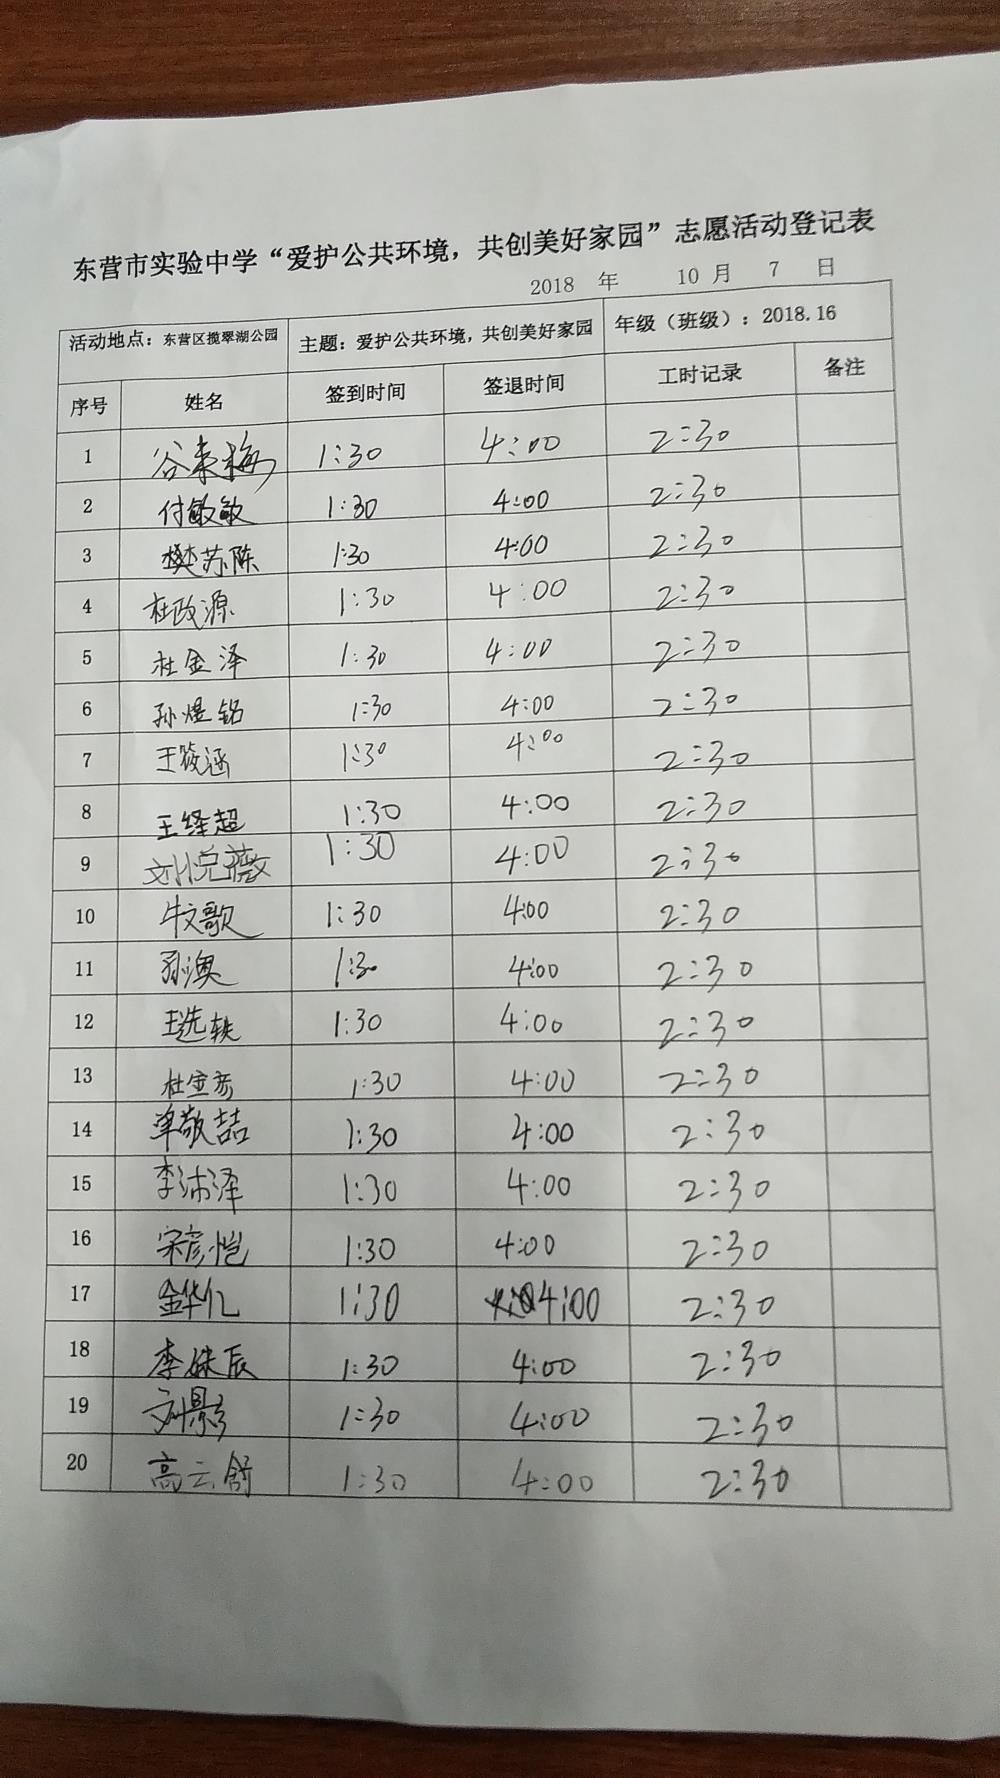 东营市实验中学“爱护公共环境，共创美好家园”志愿活动登记表
2018 年 10 月 7 日
活动地点：东营区揽翠湖公园 主题：爱护公共环境，共创美好家园 年级（班级）：2018.16
序号 姓名 签到时间 签退时间 工时记录 备注
1 谷来梅 1:30 4:00 2:30
2 付敏敏 1:30 4:00 2:30
3 樊苏陈 1:30 4:00 2:30
4 杜政源 1:30 4:00 2:30
5 杜金泽 1:30 4:00 2:30
6 孙煜铭 1:30 4:00 2:30
7 王筱涵 1:30 4:00 2:30
8 王绎超 1:30 4:00 2:30
9 刘悦薇 1:30 4:00 2:30
10 牛文歌 1:30 4:00 2:30
11 孙澳 1:30 4:00 2:30
12 王选轶 1:30 4:00 2:30
13 杜金彦 1:30 4:00 2:30
14 单敬喆 1:30 4:00 2:30
15 李沛泽 1:30 4:00 2:30
16 宋彦恺 1:30 4:00 2:30
17 金华亿 1:30 4:00 2:30
18 李姝辰 1:30 4:00 2:30
19 刘影 1:30 4:00 2:30
20 高云舒 1:30 4:00 2:30